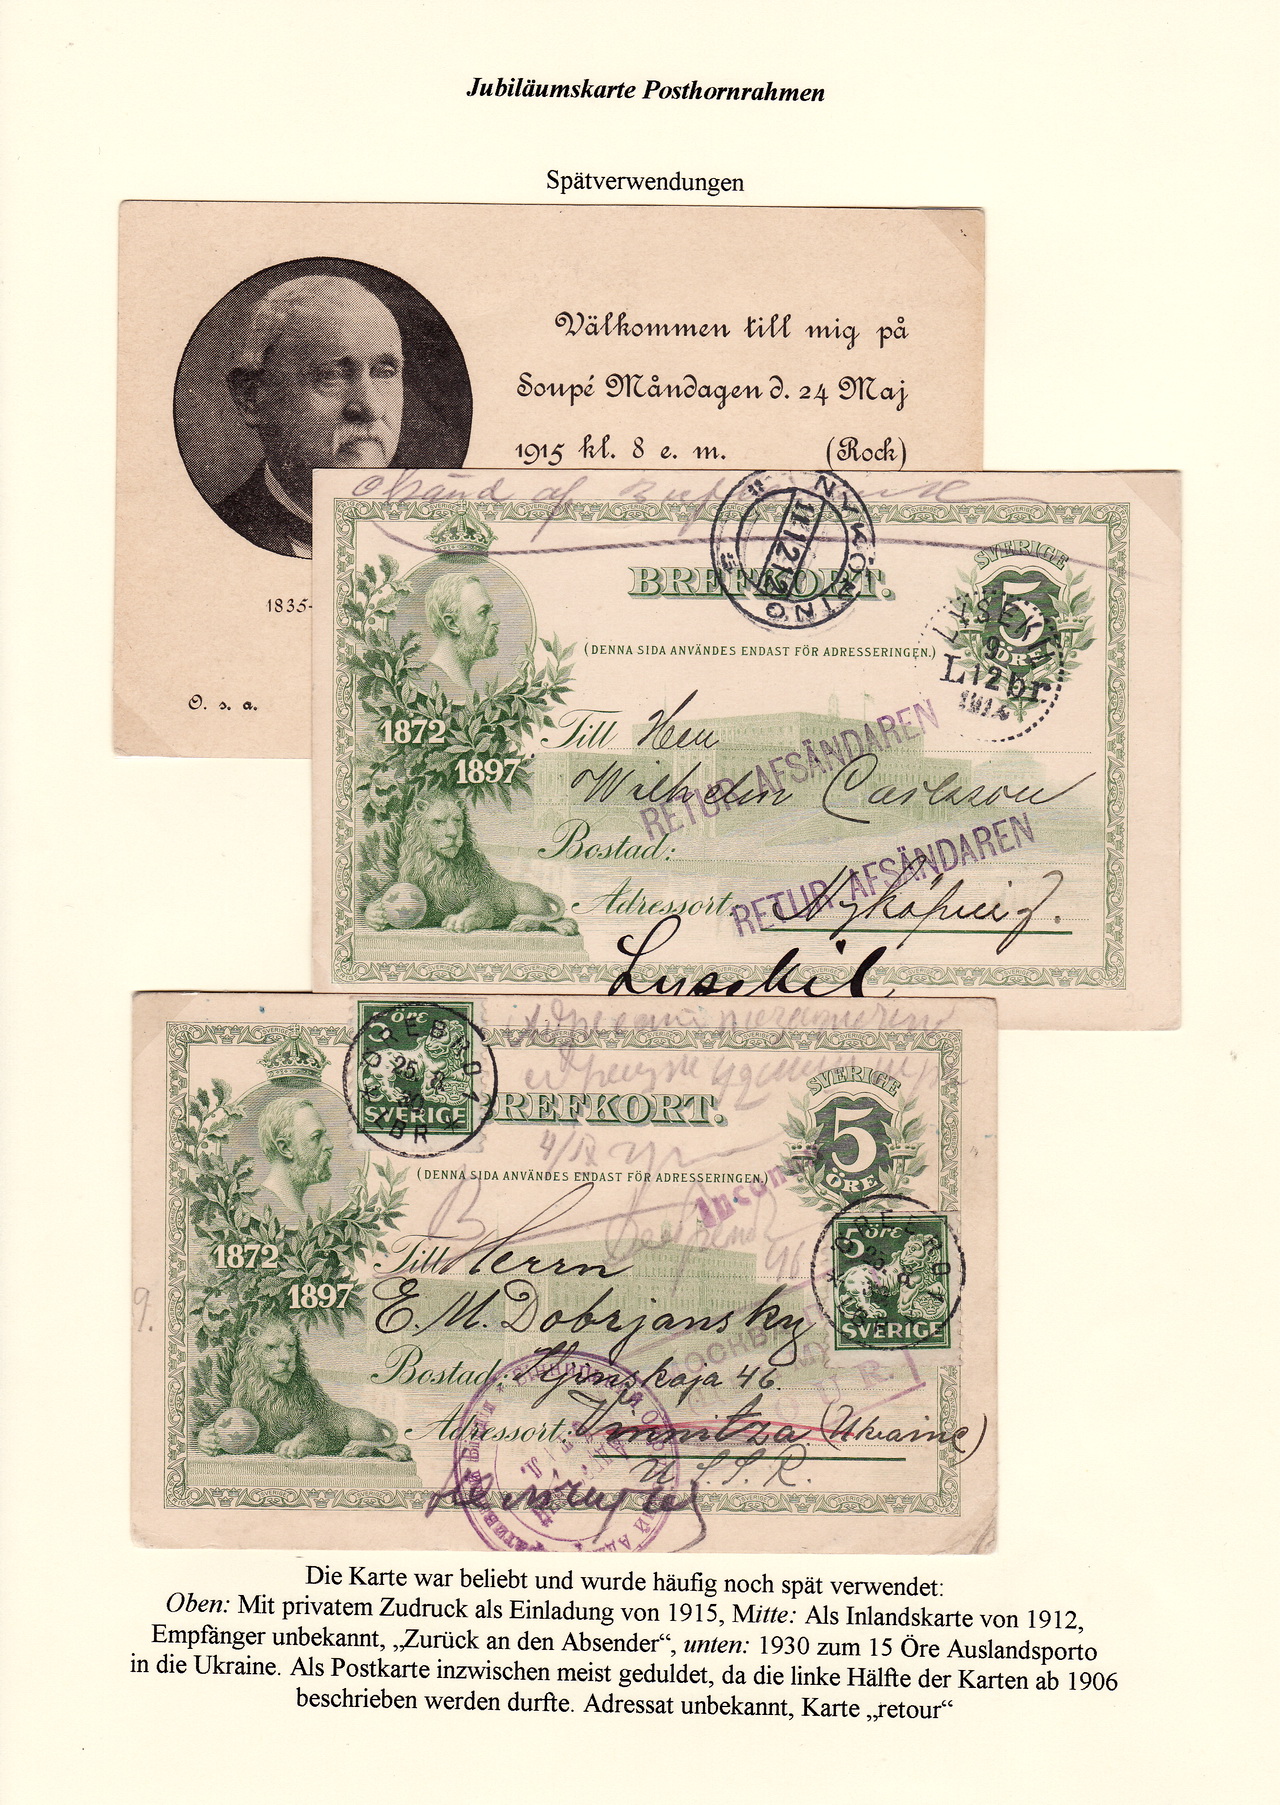 Jubiläumskarte Posthornrahmen
Spätverwendungen
Välkommen till mig på
Soupé Måndagen d. 24 Maj
1915 kl. 8 e. m. (Rock)
1835-
O. s. a.
NYKÖPING
SVERIGE
5
ÖRE
BREFKORT.
(DENNA SIDA ANVÄNDES ENDAST FÖR ADRESSERINGEN.)
LYSEKIL
1872
1897
Till Herr
Wilhelm Carlsson
RETUR AFSÄNDAREN
Bostad:
RETUR AFSÄNDAREN
Adressort: Nyköping.
Lysekil
5 öre
SVERIGE
ÖREBRO 1
25. 8.
30
LBR
SVERIGE
5
ÖRE
BREFKORT.
(DENNA SIDA ANVÄNDES ENDAST FÖR ADRESSERINGEN.)
1872
1897
Till Herrn
E. M. Dobrjansky
5 öre
SVERIGE
ÖREBRO 1
Bostad: 46
Adressort: Vinnitza (Ukraine)
U. S. S. R.
Die Karte war beliebt und wurde häufig noch spät verwendet:
Oben: Mit privatem Zudruck als Einladung von 1915, Mitte: Als Inlandskarte von 1912,
Empfänger unbekannt, „Zurück an den Absender“, unten: 1930 zum 15 Öre Auslandsporto
in die Ukraine. Als Postkarte inzwischen meist geduldet, da die linke Hälfte der Karten ab 1906
beschrieben werden durfte. Adressat unbekannt, Karte „retour“